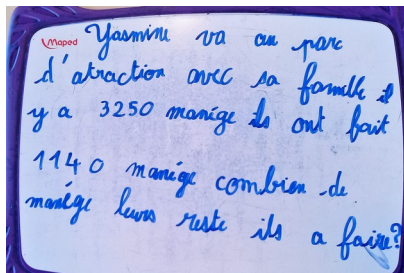 Maped
Yasmine va au parc
d'atraction avec sa famille il
y a 3250 manége ils ont fait
1140 manége combien de
manége leurs reste ils a faire?